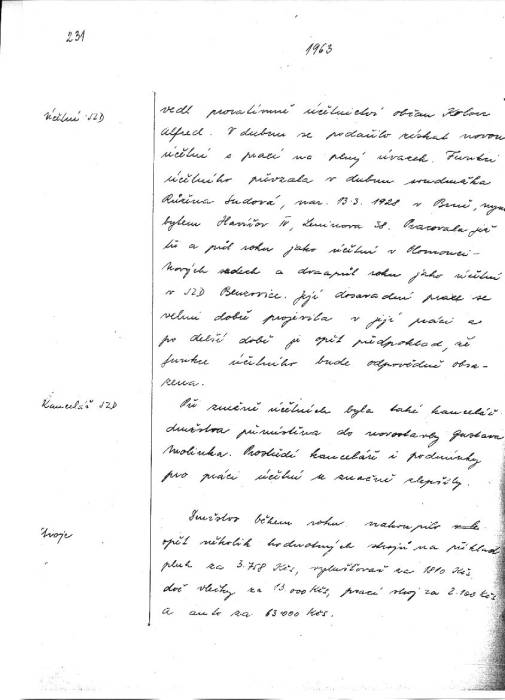 231
1963
Účetní JZD
vedl prozatímně účetnictví občan
Alfred. V dubnu se podařilo získat novou
účetní s prací na plný úvazek. Funkci
účetního převzala v dubnu soudružka
Růžena Sudová, nar. 13.3. 1928 v Brně, nyní
bytem Havířov IV, Leninova 38. Pracovala již
tři a půl roku jako účetní v Olomouci-
Nových sadech a dvaapůl roku jako účetní
v JZD Benkovice. Její dosavadní praxe se
velmi dobře projevila v její práci a
po delší době je opět předpoklad, že
funkce účetního bude odpovědně obsa-
zena.
Kancelář JZD
Při změně účetních byla také kancelář
družstva přemístěna do novostavby Gustava
Molinka. Prostředí kanceláře i podmínky
pro práci účetní se značně zlepšily.
Stroje
Družstvo během roku nakoupilo
opět několik hodnotných strojů na příklad
pluh za 3.758 Kčs, vyluštovač za 1810 Kčs,
dvě vlečky za 13 000 Kčs, prací stroj za 2.100 Kčs
a auto za 63 000 Kčs.